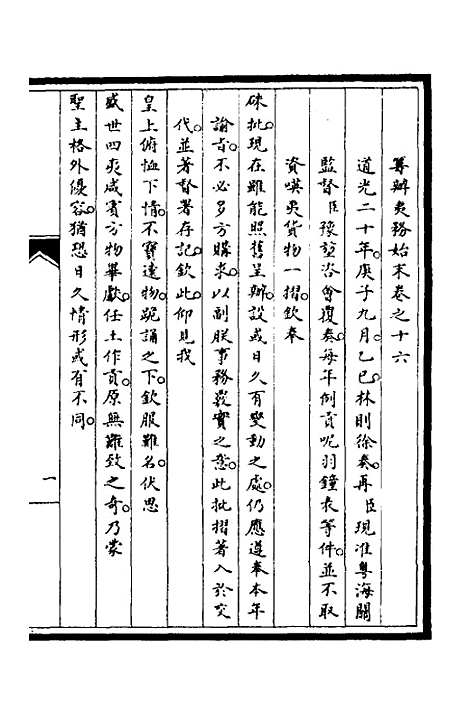 籌辦夷務始末卷之十六
道光二十年。庚子九月乙巳。林則徐奏。再臣現准粵海關
監督臣豫堃咨會。復奏每年例貢呢羽鐘表等件。並不取
資𠸄夷貨物一摺。欽奉
硃批。現在雖能照舊呈辦。設或日久有變動之處。仍應遵奉本年
諭旨。不必多方購求。以副朕事務崇實之意。此批摺著入於交
代。並著督署存記。欽此。仰見我
皇上俯恤下情。不寶遠物。跪誦之下。欽服難名。伏思
盛世四夷咸賓。方物畢獻。任土作貢。原無難致之奇。乃蒙
聖主格外優容。猶恐日久情形或有不同。
一